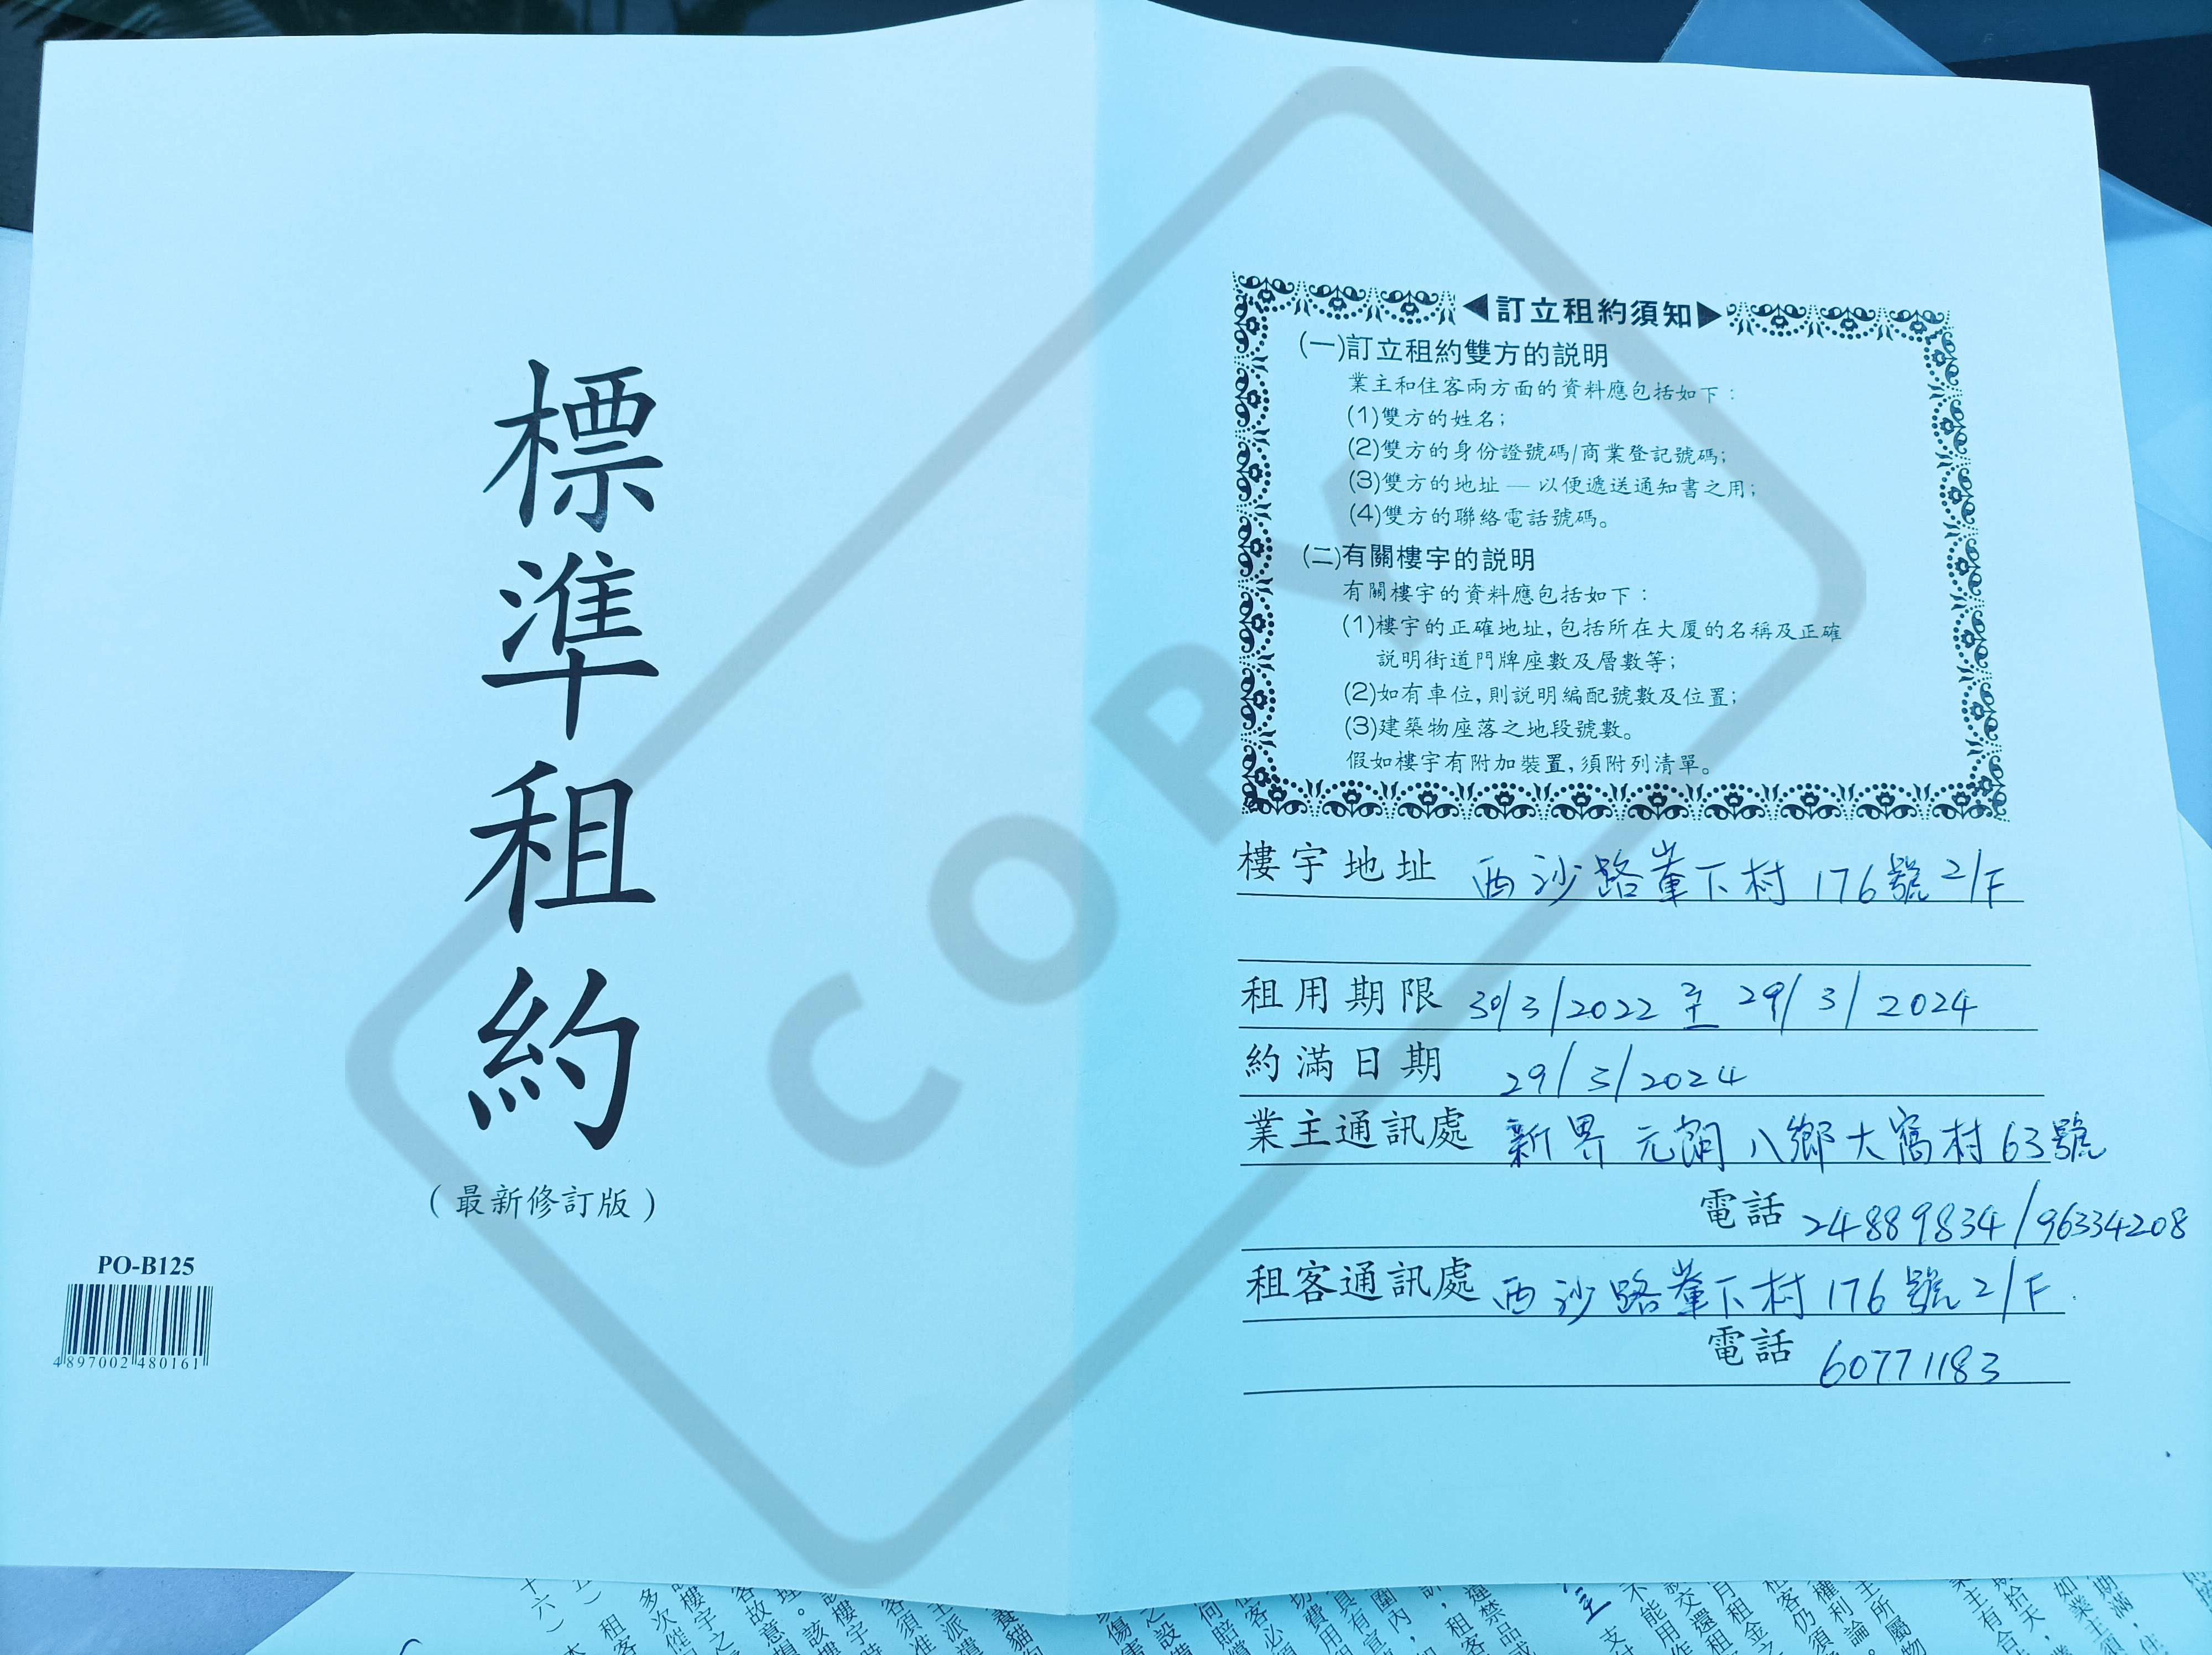 標準租約
(最新修訂版)
PO-B125
4 897002 480161
訂立租約須知
(一)訂立租約雙方的説明
業主和住客兩方面的資料應包括如下：
(1)雙方的姓名；
(2)雙方的身份證號碼/商業登記號碼；
(3)雙方的地址 — 以便遞送通知書之用；
(4)雙方的聯絡電話號碼。
(二)有關樓宇的説明
有關樓宇的資料應包括如下：
(1)樓宇的正確地址，包括所在大厦的名稱及正確
説明街道門牌座數及層數等；
(2)如有車位，則説明編配號數及位置；
(3)建築物座落之地段號數。
假如樓宇有附加裝置，須附列清單。
樓宇地址 西沙路輋下村 176號 2/F
租用期限 30/3/2022 至 29/3/2024
約滿日期 29/3/2024
業主通訊處 新界 元朗 八鄉 大窩村 63號
電話 24889834/96334208
租客通訊處 西沙路輋下村 176號 2/F
電話 60771183
COPY